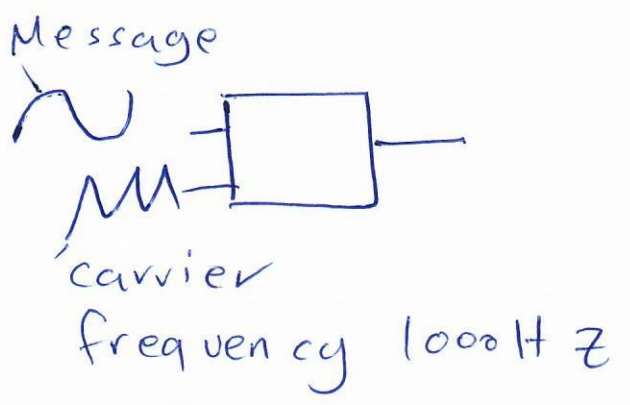 Message
carrier
frequency 1000Hz